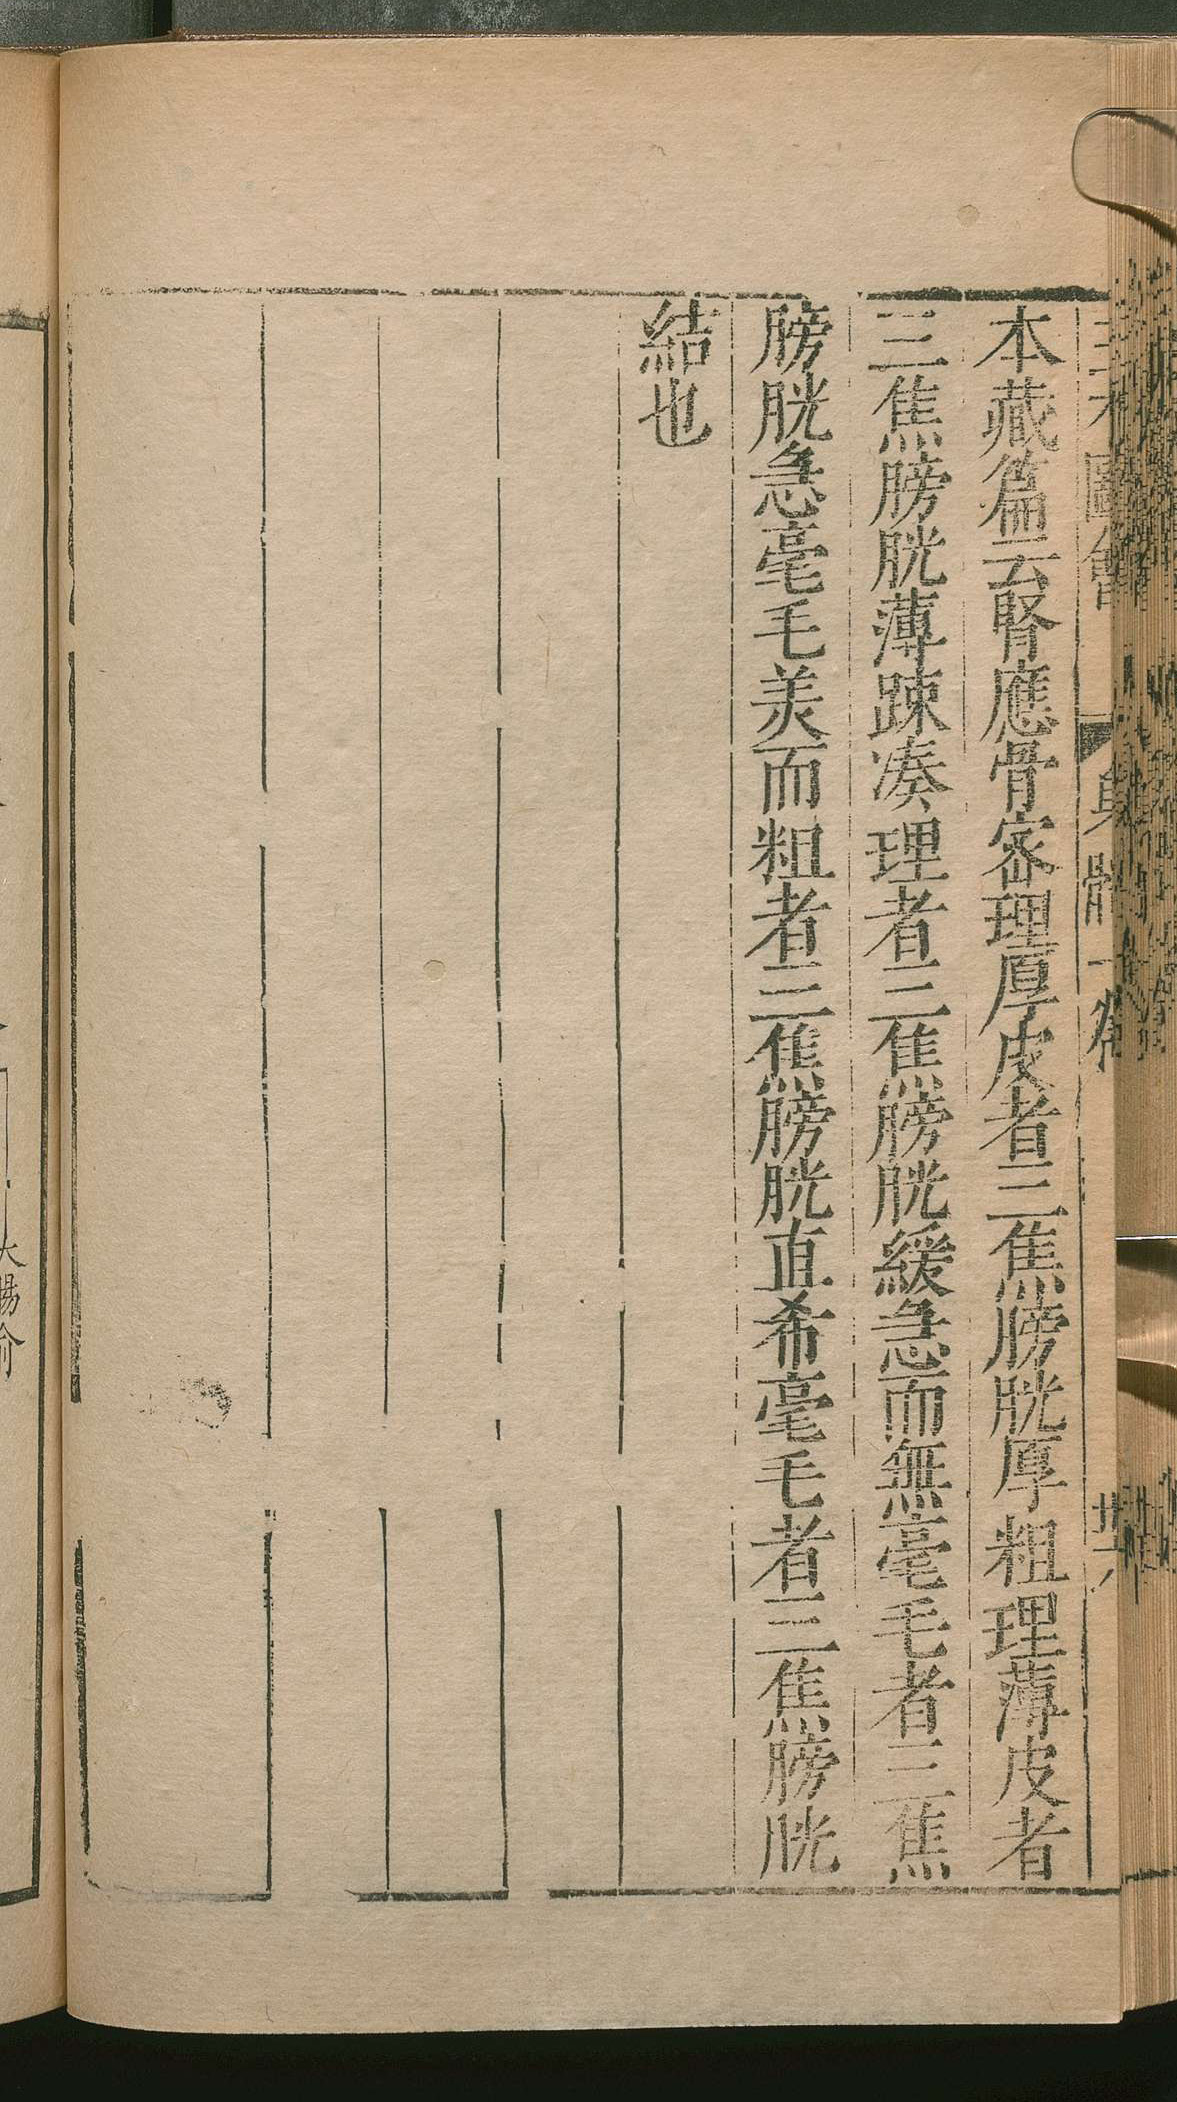 三才圖會 身體一卷 廿一
本藏篇云腎應骨宻理厚皮者三焦膀胱厚粗理薄皮者
三焦膀胱薄踈凑理者三焦膀胱緩急而無毫毛者三焦
膀胱急毫毛美而粗者三焦膀胱直希毫毛者三焦膀胱
結也